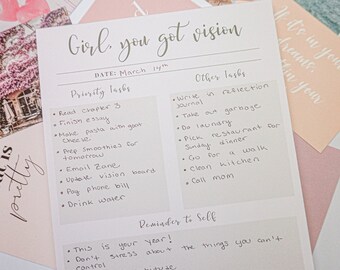 Girl, you got vision
DATE: March 14th
Priority Tasks
Read chapter 3
Finish essay
Make pasta with goat
cheese
Prep smoothies for
tomorrow
Email Zane
Update vision board
Pay phone bill
Drink water
Other Tasks
Write in reflection
journal
Take out garbage
Do laundry
Pick restaurant for
Sunday dinner
Go for a walk
Clean kitchen
Call mom
Reminder to Self
This is your year!
Don't stress about the things you can't
control
it's in your
dreams
is
pretty